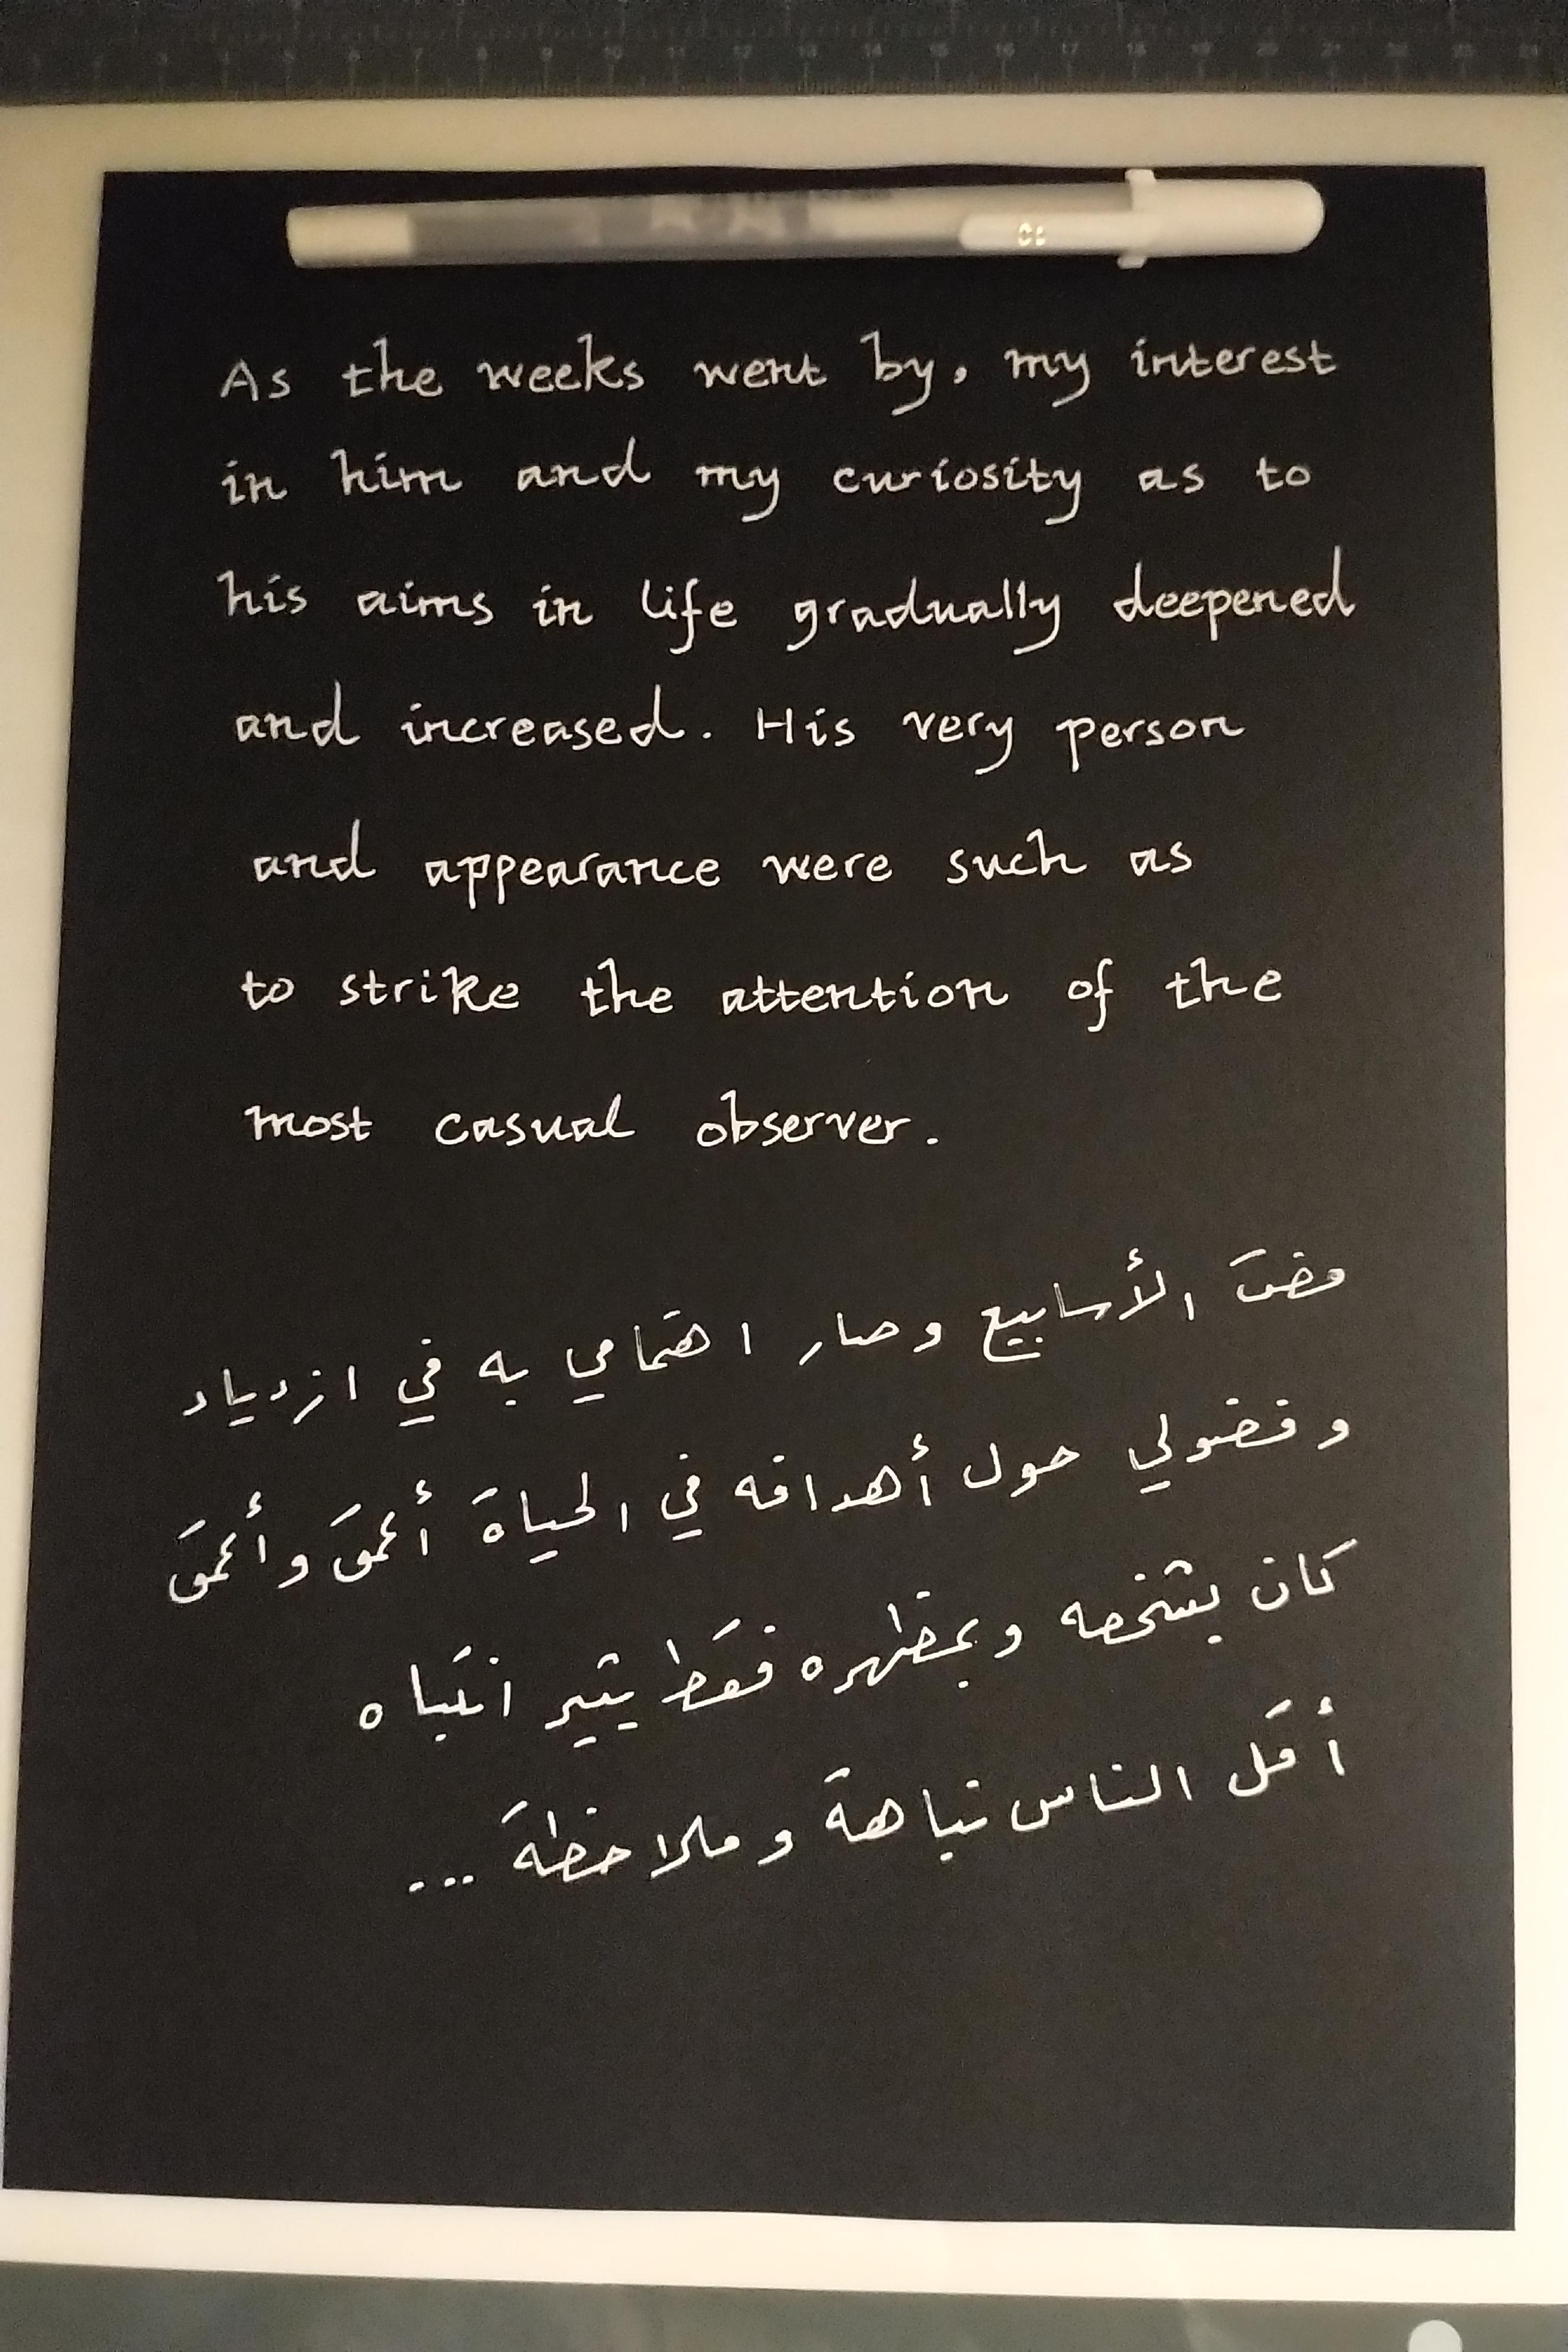 As the weeks went by, my interest
in him and my curiosity as to
his aims in life gradually deepened
and increased. His very person
and appearance were such as
to strike the attention of the
most casual observer.
مضت الأسابيع وصار اهتمامي به في ازدياد
وفضولي حول أهدافه في الحياة أعمق وأعمق
كان بشخصه وبمظهره فقط يثير انتباه
أقل الناس نباهة وملاحظة ...